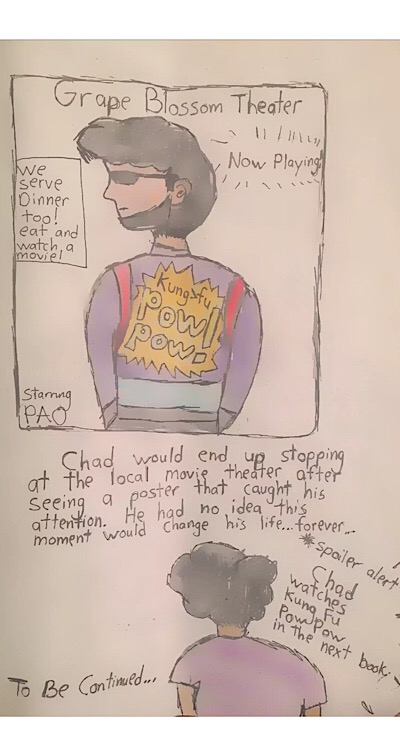 Grape Blossom Theater
Now Playing!
We
serve
Dinner
too!
eat and
watch a
movie!
Kung>fu
pow!
pow.
Starring
PAO
Chad would end up stopping
at the local movie theater after
seeing a poster that caught his
attention. He had no idea this
moment would change his life...forever...
*spoiler alert
Chad
watches
Kung Fu
Pow,pow
in the next book.
To Be Continued...